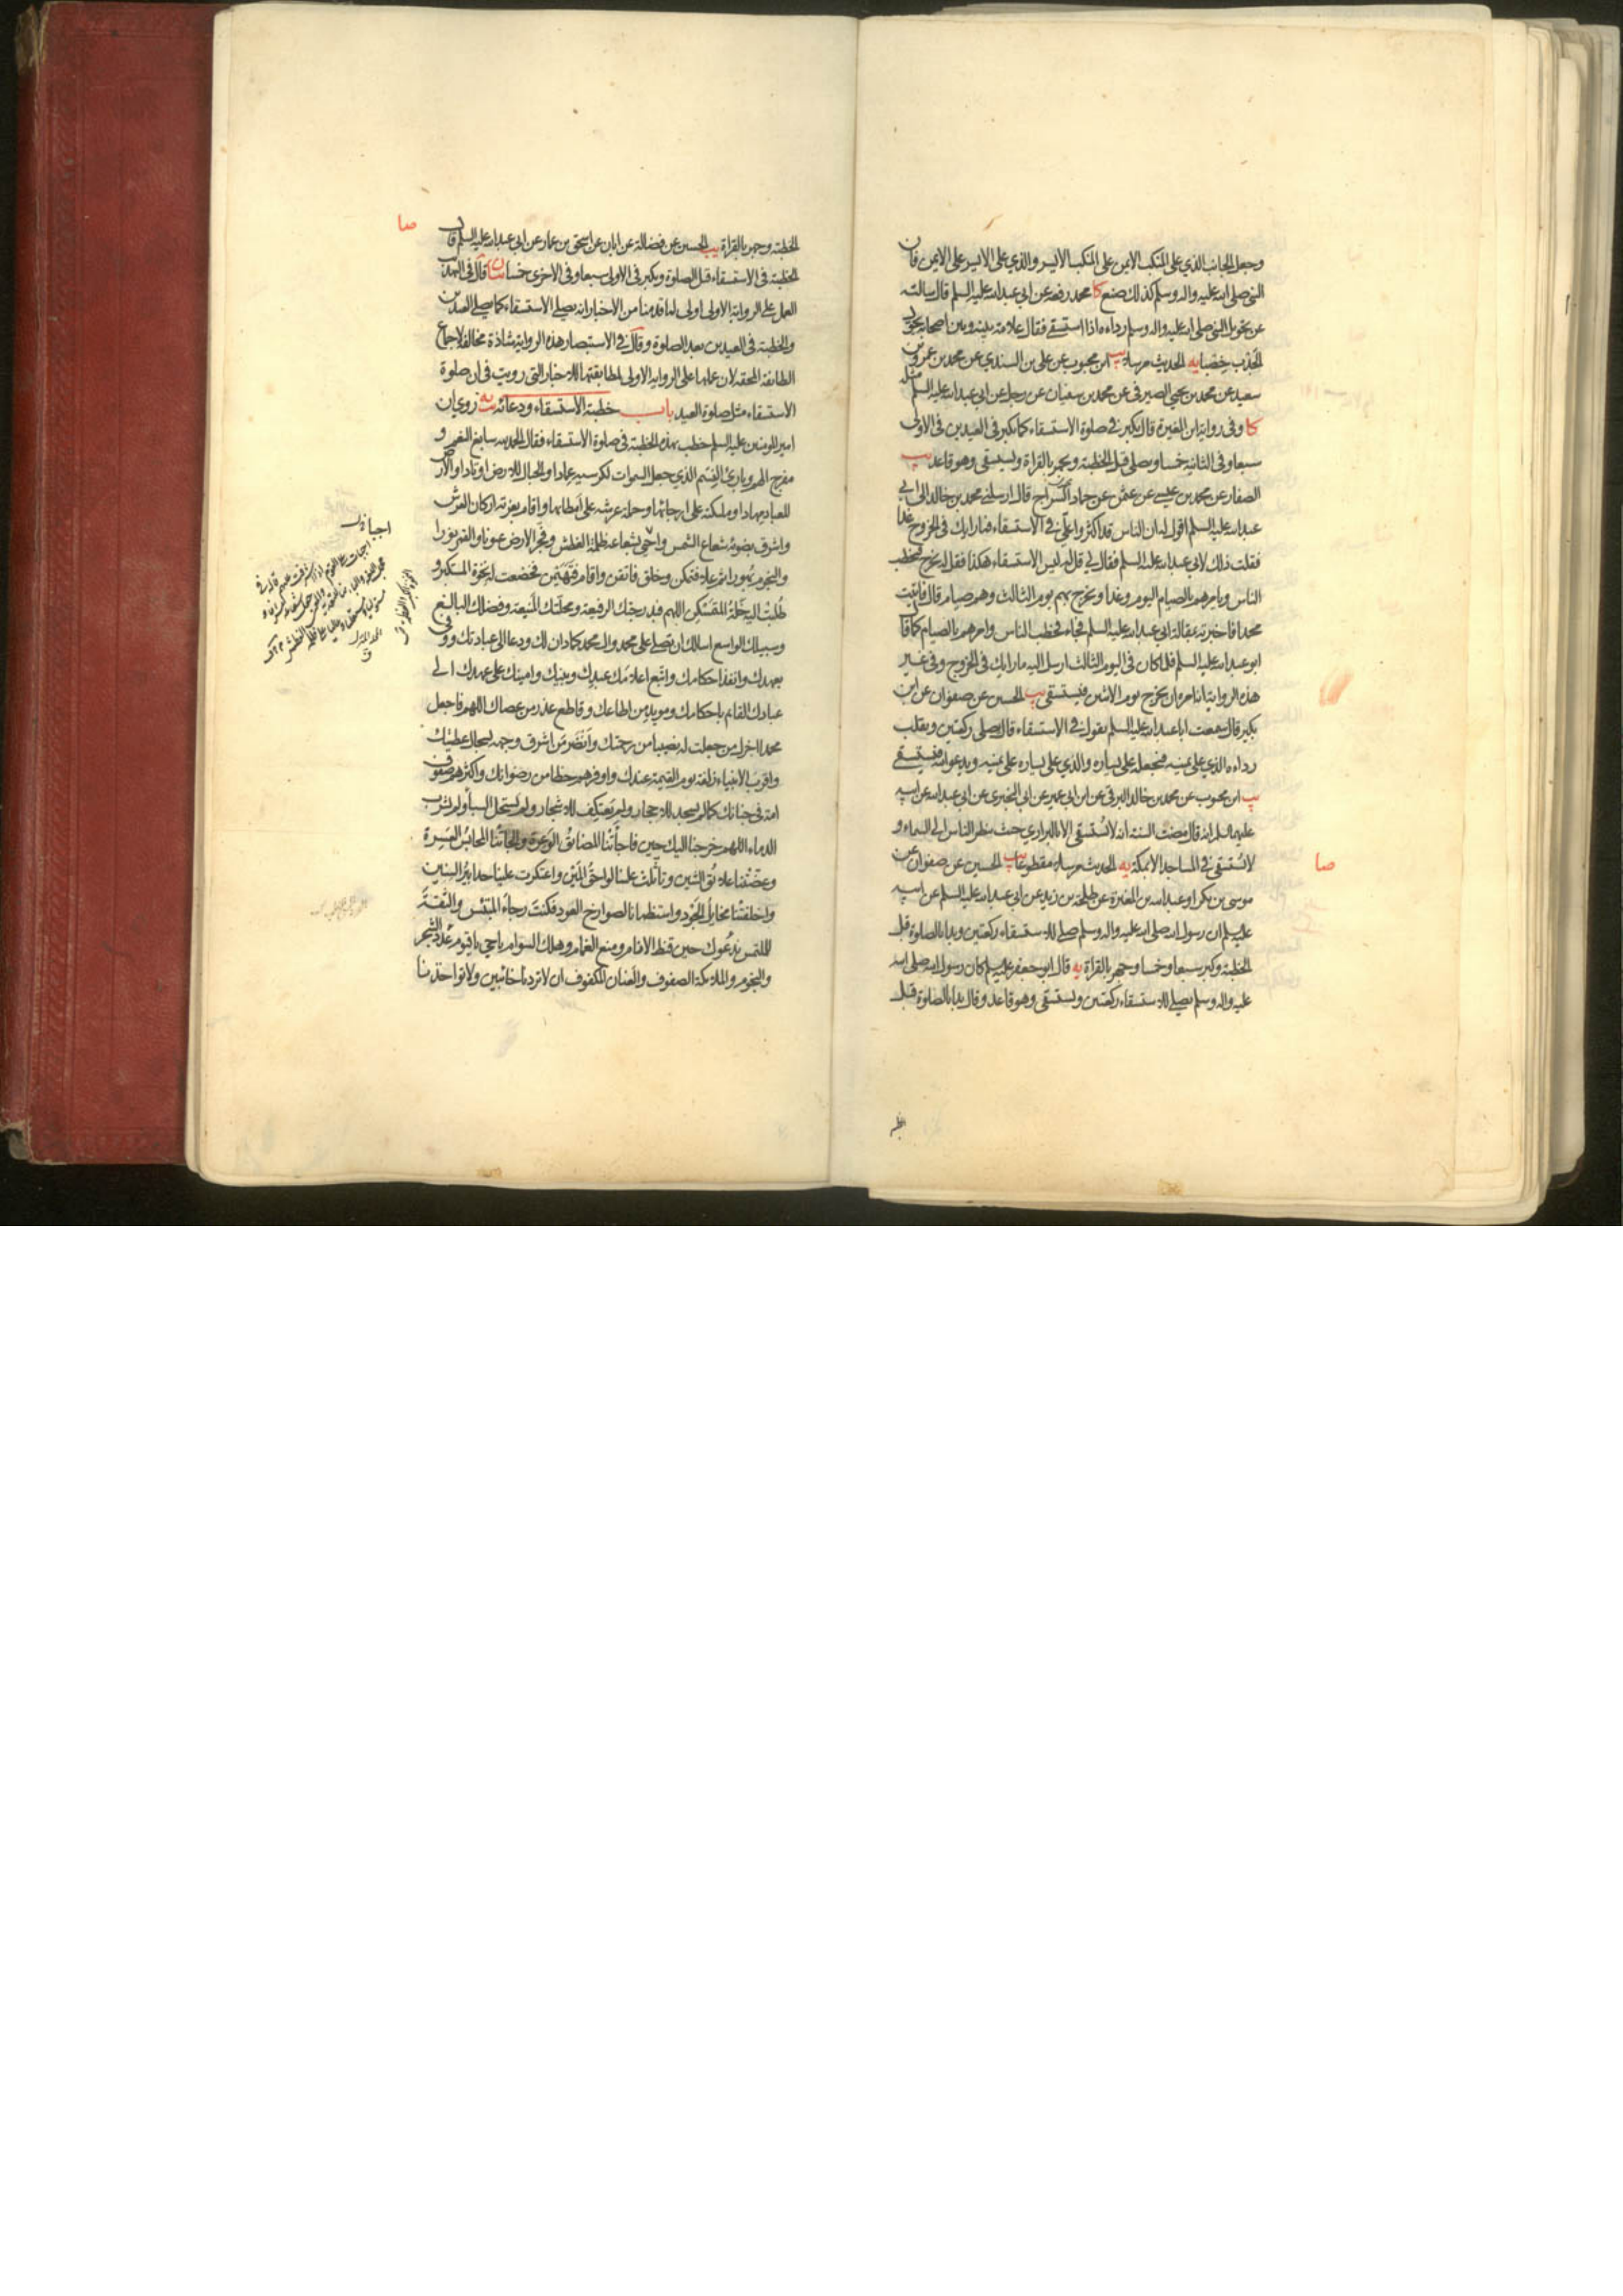 وجعل الجانب الذي على المنكب الايمن على المنكب الايسر والذي على الايسر على الايمن فان
النبي صلى الله عليه واله وسلم كذلك صنع كا محمد رفعه عن ابي عبد الله عليه السلم قال سالته
عن تحويل النبي صلى الله عليه واله وسلم رداءه اذا استسقى فقال علامة بينه وبين اصحابه يحول
الجدب خصبا يه الحديث مرسلا يب ابن محبوب عن علي بن السندي عن محمد بن عمرو بن
سعيد عن محمد بن يحيى الصيرفي عن محمد بن سفيان عن رجل عن ابي عبد الله عليه السلم مثله
كا وفي رواية ابن المغيرة قال يكبر في صلوة الاستسقاء كما يكبر في العيدين في الاولى
سبعا وفي الثانية خمسا ويصلي قبل الخطبة ويجهر بالقراة ويستسقي وهو قاعد يب
الصفار عن محمد بن عيسى عن عمن عن حماد السراج قال ارسلني محمد بن خالد الى ابي
عبد الله عليه السلم اقول له ان الناس قد اكثروا علي في الاستسقاء فما رايك في الخروج غدا
فقلت ذلك لابي عبد الله عليه السلم فقال لي قل له ليس الاستسقاء هكذا فقل له يخرج فيخطب
الناس ويامرهم بالصيام اليوم وغدا ويخرج بهم يوم الثالث وهم صيام قال فاتيت
محمدا فاخبرته بمقالة ابي عبد الله عليه السلم فجاء فخطب الناس وامرهم بالصيام كما قال
ابو عبد الله عليه السلم فلما كان في اليوم الثالث ارسل اليه ما رايك في الخروج وفي غير
هذه الرواية انه امره ان يخرج يوم الاثنين فيستسقي يب الحسين عن صفوان عن ابن
بكير قال سمعت ابا عبد الله عليه السلم يقول في الاستسقاء قال يصلي ركعتين ويقلب
رداءه الذي على يمينه فيجعله على يساره والذي على يساره على يمينه ويدعو الله فيستسقي
يب ابن محبوب عن محمد بن خالد البرقي عن ابن ابي عمير عن ابي البختري عن ابي عبد الله عن ابيه
عليهما السلم انه قال مضت السنة انه لا يستسقى الا بالبراري حيث ينظر الناس الى السماء و
لا يستسقى في المساجد الا بمكة يه الحديث مرسلا مقطوعا يب الحسين عن صفوان عن
صا
موسى بن بكر او عبد الله بن المغيرة عن طلحة بن زيد عن ابي عبد الله عليه السلم عن ابيه
عليه السلم ان رسول الله صلى الله عليه واله وسلم صلى للاستسقاء ركعتين وبدا بالصلوة قبل
الخطبة وكبر سبعا وخمسا وجهر بالقراة يه قال ابو جعفر عليه السلم كان رسول الله صلى الله
عليه واله وسلم يصلي للاستسقاء ركعتين ويستسقي وهو قاعد وقال بدا بالصلوة قبل
صا
الخطبة وجهر بالقراة يب الحسين عن فضالة عن ابان عن اسحق بن عمار عن ابي عبد الله عليه السلم قال
الخطبة في الاستسقاء قبل الصلوة ويكبر في الاولى سبعا وفي الاخرى خمسا بيان قال في التهذيب
العمل على الرواية الاولى اولى لما قدمنا من الاخبار انه يصلي الاستسقاء كما يصلي العيدين
والخطبة في العيدين بعد الصلوة وقال في الاستبصار هذه الرواية شاذة مخالفة لاجماع
الطائفة المحقة لان عملها على الرواية الاولى لمطابقتها للاخبار التي رويت في ان صلوة
الاستسقاء مثل صلوة العيد باب خطبة الاستسقاء ودعائه يه روي ان
امير المومنين عليه السلم خطب بهذه الخطبة في صلوة الاستسقاء فقال الحمد لله سابغ النعم و
مفرج الهم وباري النسم الذي جعل السموات لكرسيه عمادا والجبال للارض اوتادا والارض
للعباد مهادا وملئكته على ارجائها وحملة عرشه على امطائها واقام بعزته اركان العرش
واشرق بضوئه شعاع الشمس واحيى بشعاعه ظلمة الغطش وفجر الارض عيونا والقمر نورا
والنجوم بهورا ثم علا فتمكن وخلق فاتقن واقام فتهيمن فخضعت له نخوة المستكبر و
طلبت اليه خلة المتمسكن اللهم فبدرجتك الرفيعة ومحلتك المنيعة وفضلك البالغ
وسبيلك الواسع اسالك ان تصلي على محمد وال محمد كما دان لك ودعا الى عبادتك ووفى
بعهدك وانفذ احكامك واتبع اعلامك عبدك ونبيك وامينك على عهدك الى
عبادك القائم باحكامك ومويد من اطاعك وقاطع عذر من عصاك اللهم فاجعل
محمدا اجزل من جعلت له نصيبا من رحمتك وانضر من اشرق وجهه لسجال عطيتك
واقرب الانبياء زلفة يوم القيمة عندك واوفرهم حظا من رضوانك واكثرهم صفوف
امة في جنانك كما لم يسجد للاحجار ولم يعتكف للاشجار ولم يستحل السبا ولم يشرب
الدماء اللهم خرجنا اليك حين فاجأتنا المضائق الوعرة والجأتنا المحابس العسرة
وعضتنا علائق الشين وتاثلت علينا لواحق المين واعتكرت علينا حدابير السنين
واخلفتنا مخايل الجود واستظمانا لصوارخ العود فكنت رجاء المبتئس والثقة
للملتمس ندعوك حين قنط الانام ومنع الغمام وهلك السوام يا حي يا قيوم عدد الشجر
والنجوم والملائكة الصفوف والعنان المكفوف ان لا تردنا خائبين ولا تواخذنا